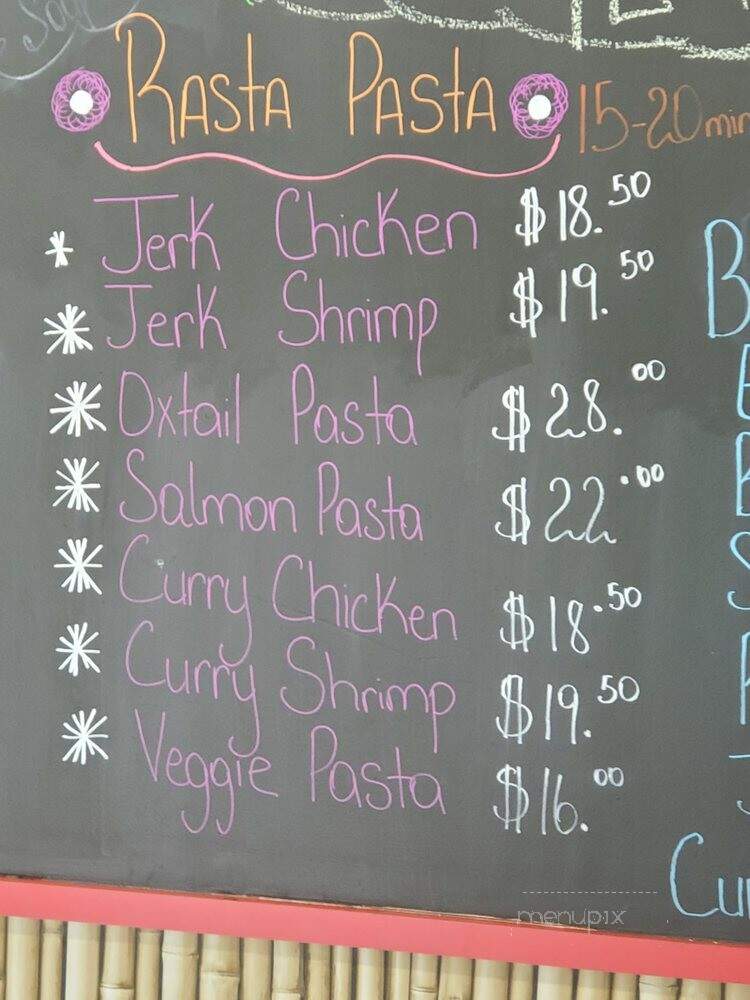 Rasta Pasta 15-20 min
* Jerk Chicken $18.50
* Jerk Shrimp $19.50
* Oxtail Pasta $28.00
* Salmon Pasta $22.00
* Curry Chicken $18.50
* Curry Shrimp $19.50
* Veggie Pasta $16.00
menupix